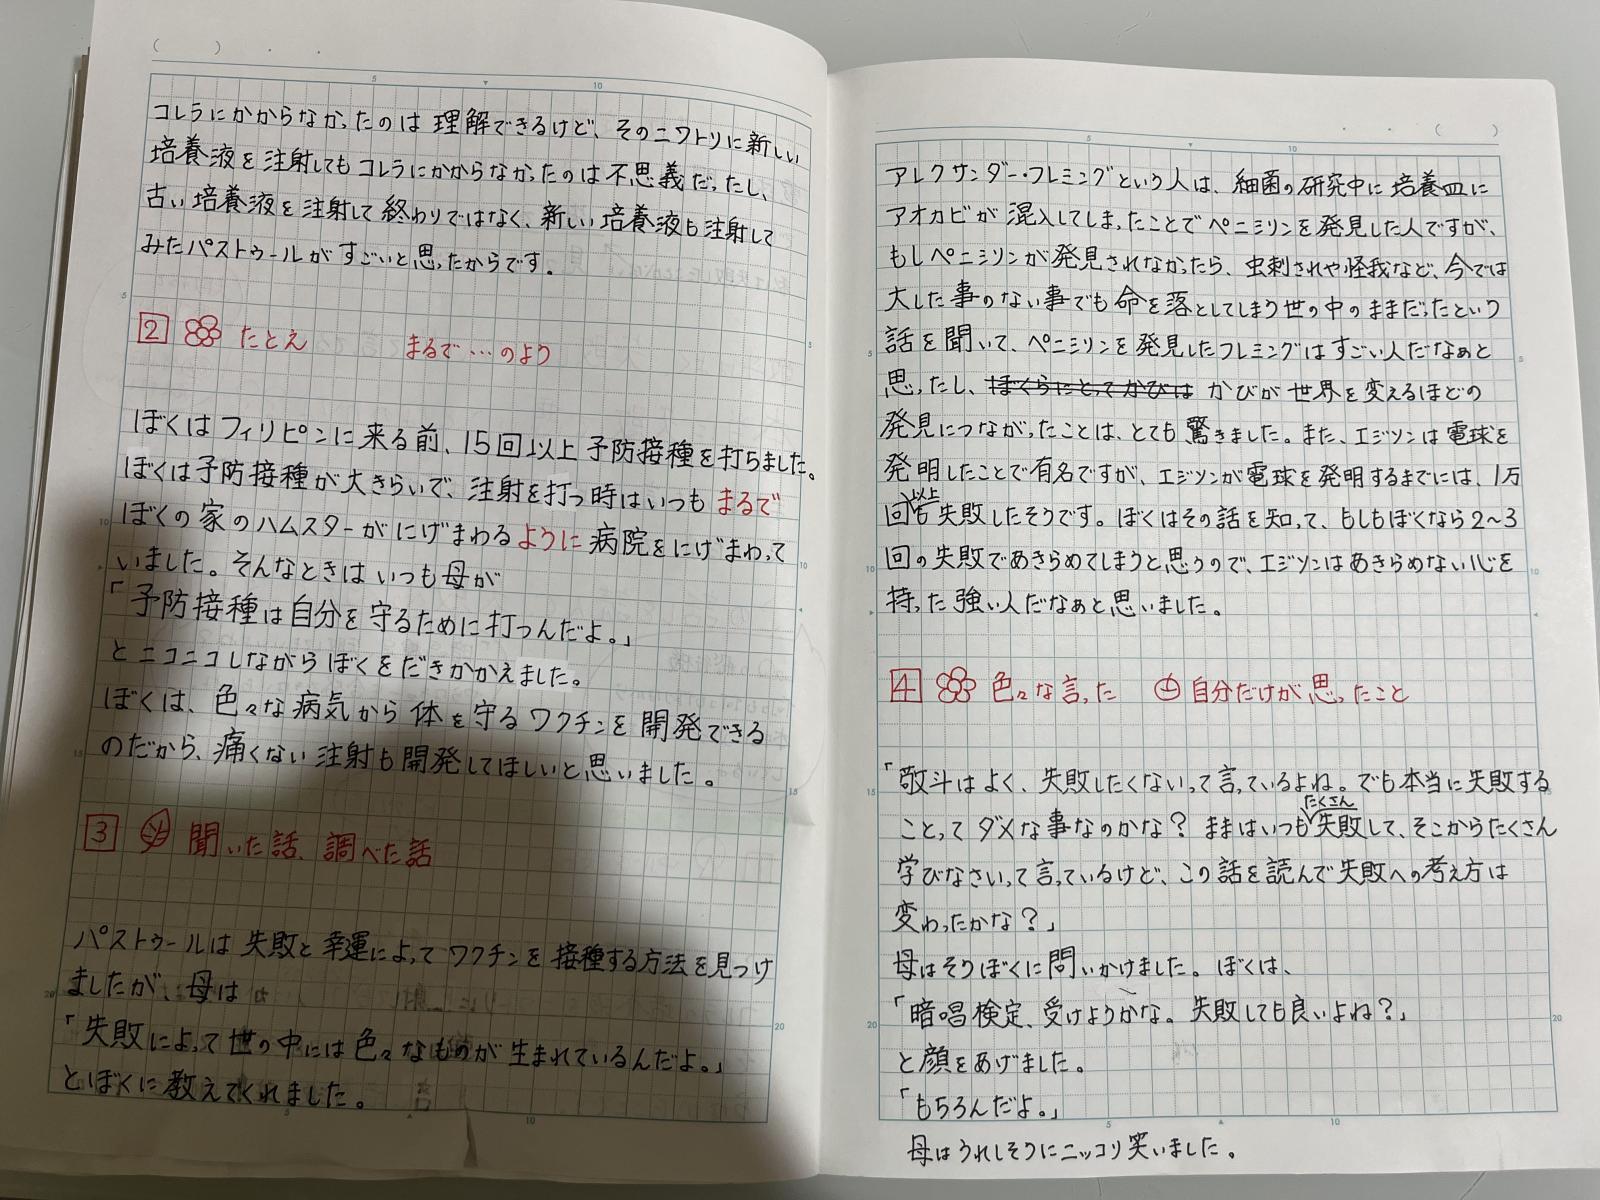 コレラにかからなかったのは理解できるけど、そのニワトリに新しい
培養液を注射してもコレラにかからなかったのは不思義だったし、
古い培養液を注射して終わりではなく、新しい培養液も注射して
みたパストゥールがすごいと思ったからです。
2 たとえ まるで…のよう
ぼくはフィリピンに来る前、15回以上予防接種を打ちました。
ぼくは予防接種が大きらいで、注射を打つ時はいつもまるで
ぼくの家のハムスターがにげまわるように病院をにげまわって
いました。そんなときはいつも母が
「予防接種は自分を守るために打つんだよ。」
とニコニコしながらぼくをだきかかえました。
ぼくは、色々な病気から体を守るワクチンを開発できる
のだから、痛くない注射も開発してほしいと思いました。
3 聞いた話、調べた話
パストゥールは失敗と幸運によってワクチンを接種する方法を見つけ
ましたが、母は
「失敗によって世の中には色々なものが生まれているんだよ。」
とぼくに教えてくれました。
アレクサンダー・フレミングという人は、細菌の研究中に培養皿に
アオカビが混入してしまったことでペニミリンを発見した人ですが、
もしペニミリンが発見されなかったら、虫刺されや怪我など、今では
大した事のない事でも命を落としてしまう世の中のままだったという
話を聞いて、ペニミリンを発見したフレミングはすごい人だなぁと
思ったし、ぼくらにとってかびは かびが世界を変えるほどの
発見につながったことは、とても驚きました。また、エジソンは電球を
発明したことで有名ですが、エジソンが電球を発明するまでには、1万
回以上も失敗したそうです。ぼくはその話を知って、もしもぼくなら2〜3
回の失敗であきらめてしまうと思うので、エジソンはあきらめない心を
持った強い人だなぁと思いました。
4 色々な言った 自分だけが思ったこと
「敬斗はよく、失敗したくないって言っているよね。でも本当に失敗する
ことってダメな事なのかな？ままはいつもたくさん失敗して、そこからたくさん
学びなさいって言っているけど、この話を読んで失敗への考え方は
変わったかな？」
母はそうぼくに問いかけました。ぼくは、
「暗唱検定、受けようかな。失敗しても良いよね？」
と顔をあげました。
「もちろんだよ。」
母はうれしそうにニッコリ笑いました。